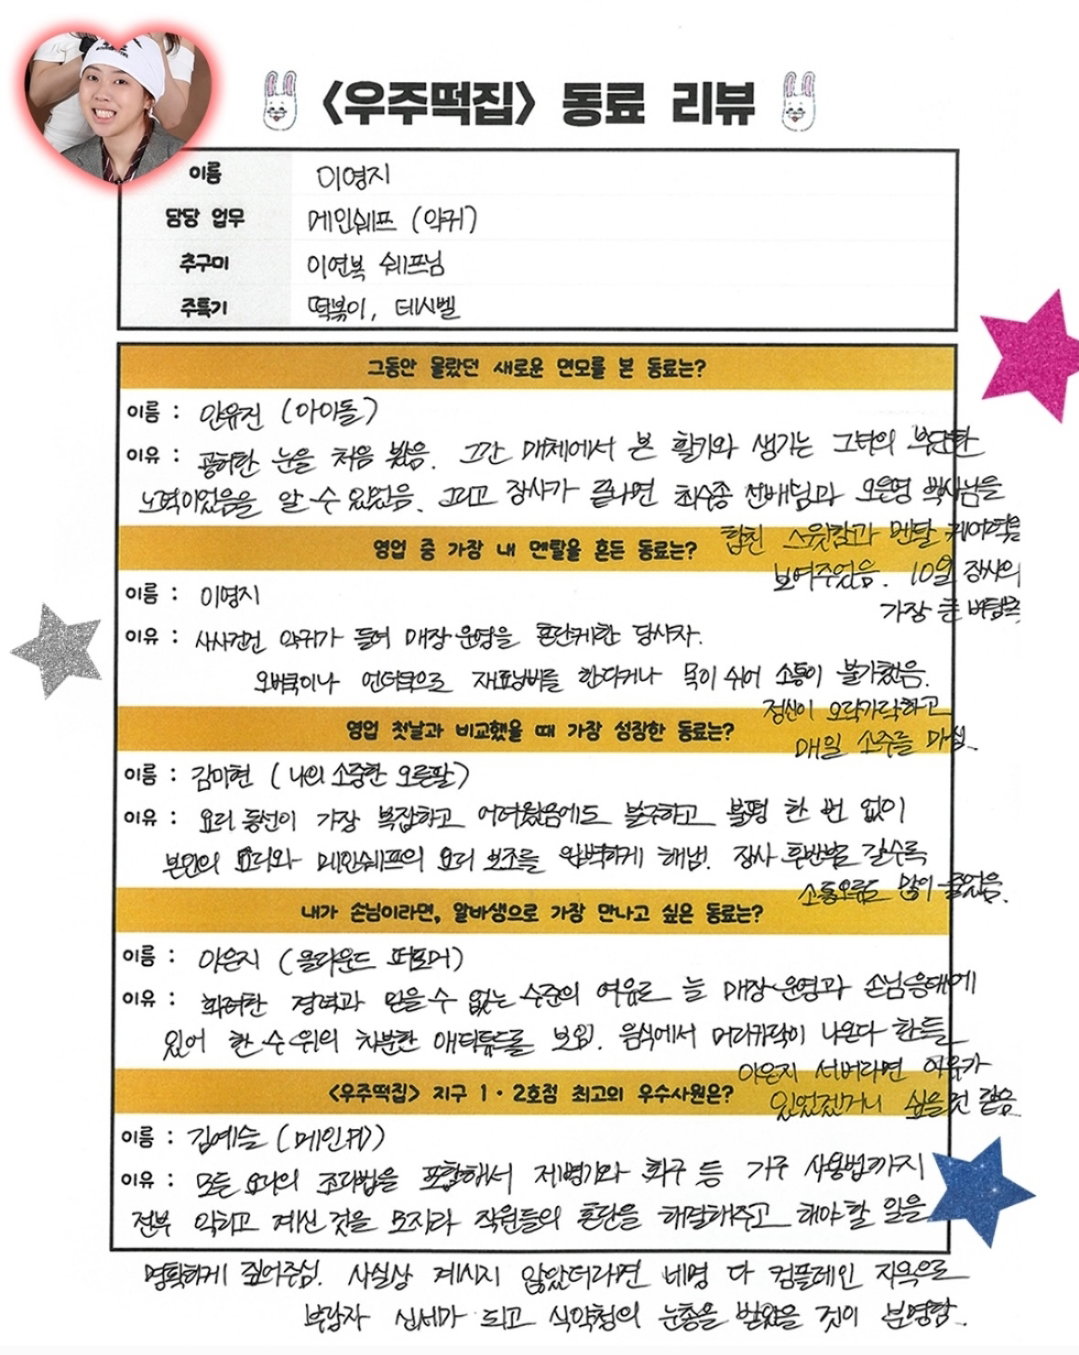 <우주떡집> 동료 리뷰
이름 이영지
담당 업무 메인쉐프 (악귀)
추구미 이연복 쉐프님
주특기 떡볶이, 데시벨
그동안 몰랐던 새로운 면모를 본 동료는?
이름 : 안유진 (아이돌)
이유 : 공허한 눈을 처음 봤음. 그간 매체에서 본 활기와 생기는 그녀의 부단한
노력이었음을 알 수 있었음. 그리고 장사가 끝나면 최수종 선배님과 오은영 박사님을
합친 스윗함과 멘탈 케어력을
보여주었음. 10일 장사의
가장 큰 버팀목
영업 중 가장 내 멘탈을 흔든 동료는?
이름 : 이영지
이유 : 사사건건 악귀가 들어 매장 운영을 혼란케한 당사자.
오버쿡이나 언더쿡으로 재료낭비를 한다거나 목이 쉬어 소통이 불가했음.
정신이 오락가락하고
매일 소주를 마심.
영업 첫날과 비교했을 때 가장 성장한 동료는?
이름 : 김미현 (나의 소중한 오른팔)
이유 : 요리 동선이 가장 복잡하고 어려웠음에도 불구하고 불평 한 번 없이
본인의 요리와 메인쉐프의 요리 보조를 완벽하게 해냄! 장사 후반부로 갈수록
소통오류도 많이 줄었음.
내가 손님이라면, 알바생으로 가장 만나고 싶은 동료는?
이름 : 이은지 (올라운드 퍼포머)
이유 : 화려한 경력과 믿을 수 없는 수준의 여유로 늘 매장 운영과 손님응대에
있어 한 수 위의 차분한 애티튜드를 보임. 음식에서 머리카락이 나온다 한들
이은지 서버라면 이유가
있었겠거니 싶을 것 같음
<우주떡집> 지구 1·2호점 최고의 우수사원은?
이름 : 김예슬 (메인PD)
이유 : 모든 요리의 조리법을 포함해서 제빙기와 화구 등 가구 사용법까지
전부 익히고 계신 것을 모자라 직원들의 혼란을 해결해주고 해야할 일을
명확하게 짚어주심. 사실상 계시지 않았더라면 네명 다 컴플레인 지옥으로
부랑자 신세가 되고 식약청의 눈총을 받았을 것이 분명함.